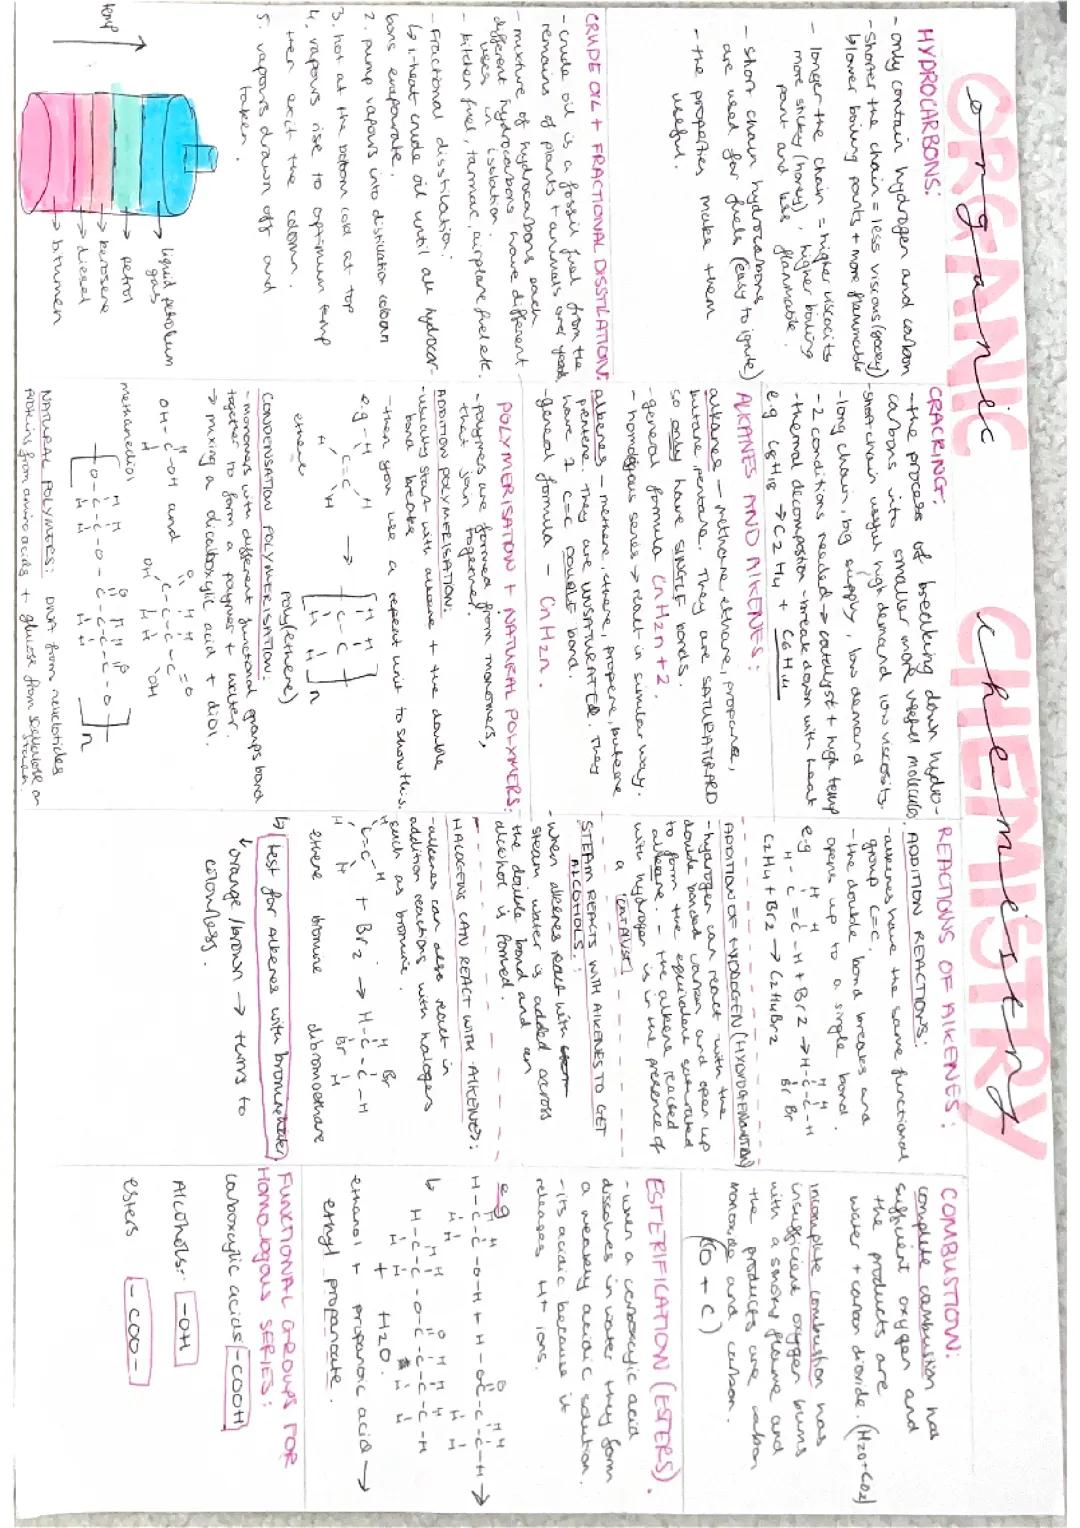 ORGANIC CHEMISTRY
organic chemistry
HYDROCARBONS:
- only contain hydrogen and carbon
- shorter the chain = less viscous (gooey)
lower boiling points + more flammable
- longer the chain = higher viscocity
more sticky (honey), higher boiling
point and less flammable.
- short chain hydrocarbons
are used for fuels (easy to ignite)
- the properties make them
useful.
CRUDE OIL + FRACTIONAL DISSTILATION:
- crude oil is a fossil fuel from the
remains of plants + animals over years
- mixture of hydrocarbons each
different hydrocarbons have different
uses in isolation.
- kitchen fuel, tarmac, airplane fuel etc.
- fractional disstilation:
↳ 1. heat crude oil until all hydrocar-
bons evapourate.
2. pump vapours into distillation coloum
3. hot at the bottom cool at top
4. vapours rise to optimum temp
then exit the colomn.
5. vapours drawn off and
taken.
temp
liquid petroleum
gas
petrol
kerosene
diesel
bitumen
CRACKING:
- the process of breaking down hydro-
carbons into smaller more useful molecules.
- short chain useful high demand low viscosity.
- long chain, big supply, low demand
- 2 conditions needed → catalyst + high temp
- thermal decomposition - break down with heat
e.g C8H18 → C2H4 + C6H14
ALKANES AND ALKENES:
alkanes - methane, ethane, propane,
butane, pentane. They are SATURATED
so only have SINGLE bonds.
- general formula CnH2n+2.
- homologous series → react in similar way.
alkenes - methene, ethene, propene, butene
pentene. They are UNSATURATED. They
have 2 C=C DOUBLE bond.
- general formula - CnH2n.
POLYMERISATION + NATURAL POLYMERS:
- polymers are formed from monomers,
that join together.
ADDITION POLYMERISATION:
- usually start with alkene + the double
bond breaks
- then you use a repeat unit to show this.
e.g H H
C=C →
H H
[H H
C-C
H H]n
ethene poly(ethene)
CONDENSATION POLYMERISATION:
- monomers with different functional groups bond
together to form a polymer + water.
→ mixing a dicarboxylic acid + diol.
OH-C-OH and
methanediol
NATURAL POLYMERS: DNA from neucleotides
proteins from amino acids + glucose from cellulose or
starch.
REACTIONS OF ALKENES:
ADDITION REACTIONS:
- alkenes have the same functional
group C=C.
- the double bond breaks and
opens up to a single bond.
e.g H H
H-C=C-H + Br2 → H-C-C-H
Br Br
C2H4 + Br2 → C2H4Br2
ADDITION OF HYDROGEN (HYDROGENATION)
- hydrogen can react with the
double bonded carbon and open up
to form the equivalent saturated
alkane. - the alkene reacted
with hydrogen is in the presence of
a CATALYST
STEAM REACTS WITH ALKENES TO GET
ALCOHOLS:
- when alkenes react with
steam water is added across
the double bond and an
alcohol is formed.
HALOGENS CAN REACT WITH ALKENES:
- alkenes can also react in
addition reactions with halogens
such as bromine.
H H
C=C + Br2 → H-C-C-H
H H Br H
ethene bromine dibromoethane
↳ test for alkenes with bromine water
↳ orange/brown → turns to
colourless.
COMBUSTION:
complete combustion has
sufficient oxygen and
the products are
water + carbon dioxide. (H2O + CO2)
incomplete combustion has
insufficient oxygen burns
with a smoky flame and
the products are carbon
monoxide and carbon.
(CO + C)
ESTERIFICATION (ESTERS).
- when a carboxylic acid
dissolves in water they form
a weakly acidic solution.
- its acidic because it
releases H+ ions.
e.g
+ H2O.
ethanol + propanoic acid →
ethyl propanoate.
FUNCTIONAL GROUPS FOR
HOMOLOGOUS SERIES:
carboxcylic acids -COOH
Alcohols: -OH
esters -COO-